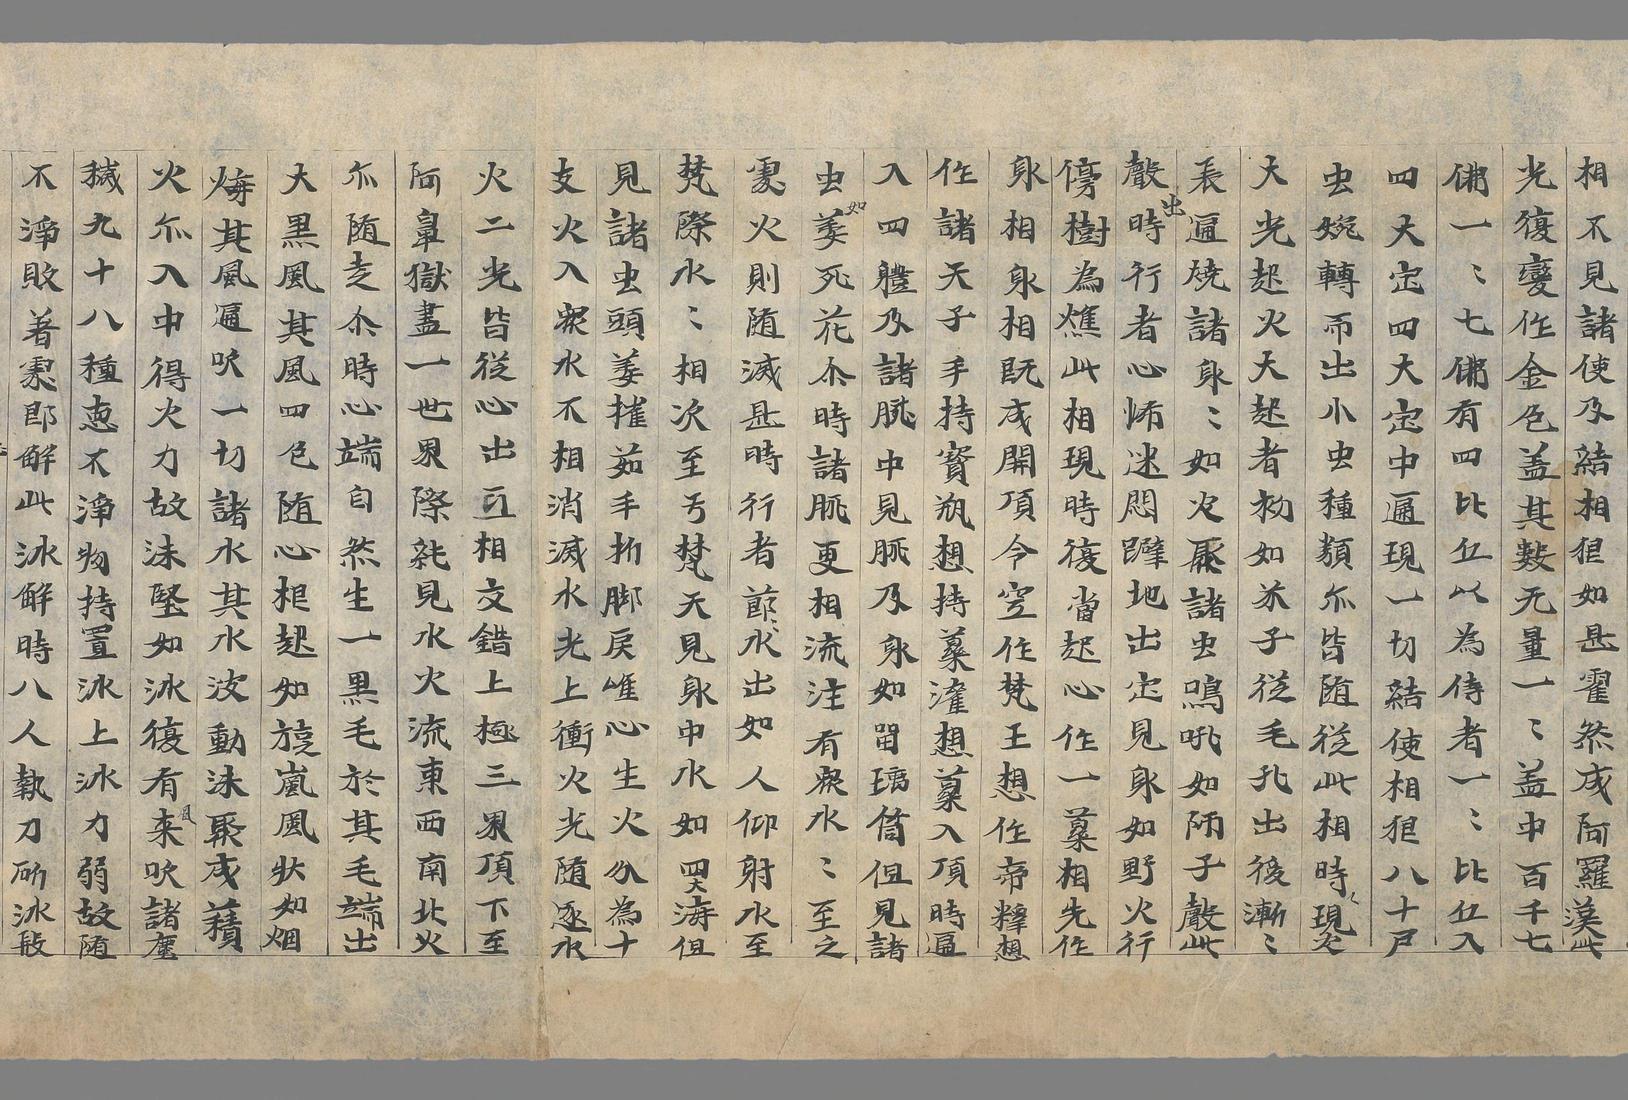 相不見諸使及結相狼如是霍然成阿羅漢此
光復變作金色盖其數无量一〻盖中百千七
佛一〻七佛有四比丘以為侍者一〻比丘入
四大㝎四大㝎中遍現一切結使相狼八十戸
虫蜿轉而出小虫種類尒皆随従此相時現
大光起火天天起者初如芥子従毛孔出後漸〻
長遍燒諸身〻如火聚諸虫鳴吼如師子聲此
聲出時行者心怖迷悶躃地出㝎見身如野火行
傍樹為燋此相現時復當起心作一藥相先作
身相身相既成開頂令空作梵王想作帝釋想
作諸天子手持寳瓶想持藥灌想藥入頂時遍
入四體及諸脉中見脉及身如瑠璃筩但見諸
虫如萎死花尒時諸脉更相流注有凝水〻至之
䖏火則随滅是時行者節〻水出如人仰射水至
梵際水〻相次至于梵天見身中水如四大海但
見諸虫頭萎摧茹手折脚戾唯心生火分為十
支火入凝水不相消滅水光上衝火光随逐水
火二光皆従心出互相交錯上極三界頂下至
阿鼻獄盡一世界際純見水火流東西南北火
尒随走尒時心端自然生一黒毛於其毛端出
大黒風其風四色随心根起如旋嵐風状如烟
㷔其風遍吹一切諸水其水波動沫聚成積
火尒入中得火力故沫堅如冰復有風来吹諸塵
穢九十八種惡不淨物持置冰上冰力弱故随
不淨敗著䖏即解此冰解時八人執刀斫冰段